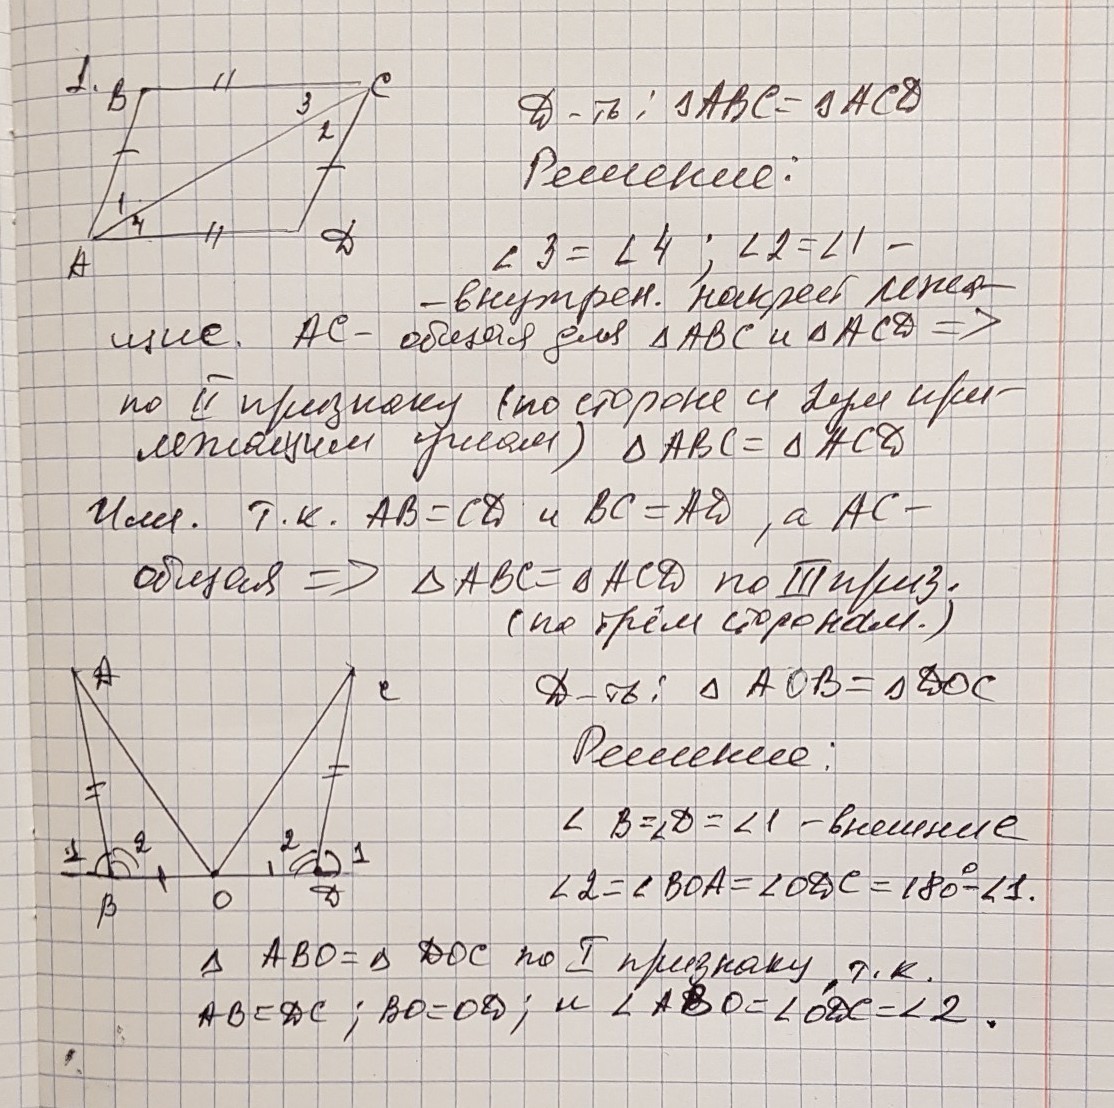 1. B C
3
2
1
4
A D
Д-ть: ΔABC = ΔACD
Решение:
∠3 = ∠4 ; ∠2 = ∠1 -
- внутрен. накрест лежа-
щие. AC - общая для ΔABC и ΔACD =>
по II признаку (по стороне и 2ум при-
лежащим углам) ΔABC = ΔACD
Или. т.к. AB = CD и BC = AD, а AC -
общая => ΔABC = ΔACD по III приз.
(по трём сторонам.)
A C
1 2 2 1
B O D
Д-ть: Δ AOB = ΔDOC
Решение:
∠ B = ∠D = ∠1 - внешние
∠2 = ∠BOA = ∠ODC = 180° - ∠1.
Δ ABO = Δ DOC по I признаку, т.к.
AB = DC ; BO = OD ; и ∠ABO = ∠ODC = ∠2 .